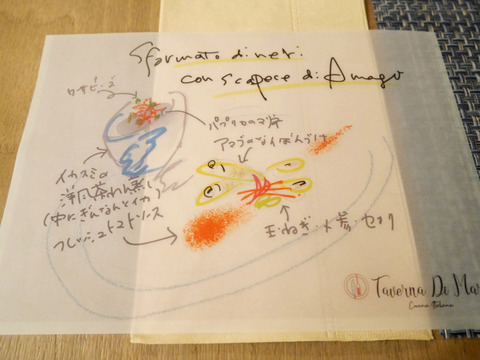 Sformato di neri
con scapece di Amago
ロザピンコ
パプリカのマ
アマゴのなんばんづけ
イカスミの
洋風茶わん蒸し
(中にぎんなんとイカ)
フレッシュトマトソース
玉ねぎ・人参・セロリ
Taverna Di Mar
Cucina Italiana